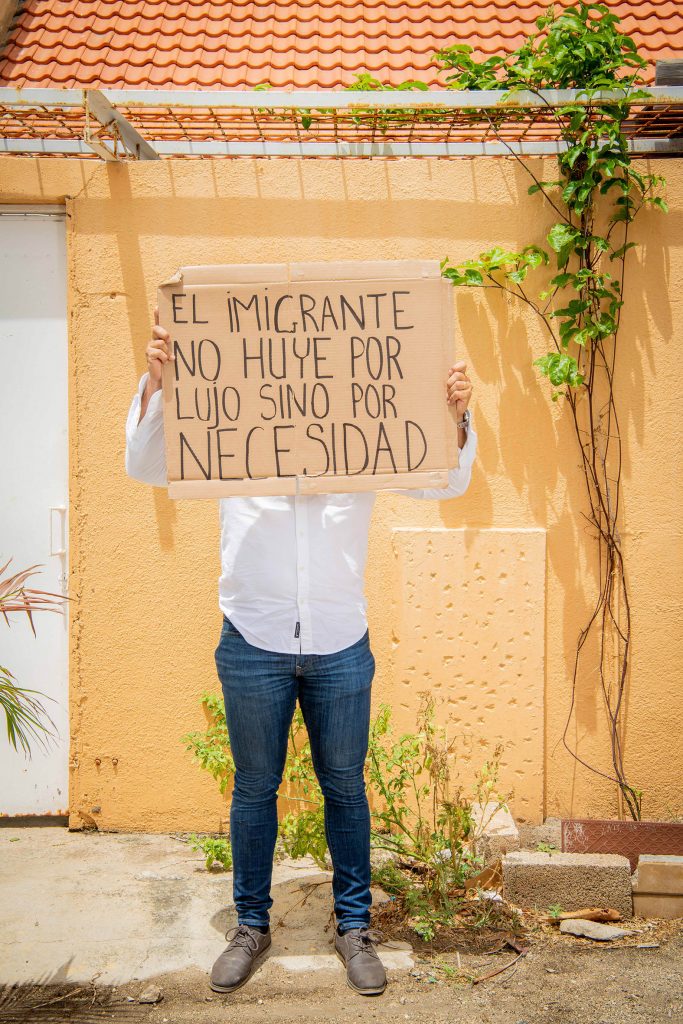 EL IMIGRANTE
NO HUYE POR
LUJO SINO POR
NECESIDAD